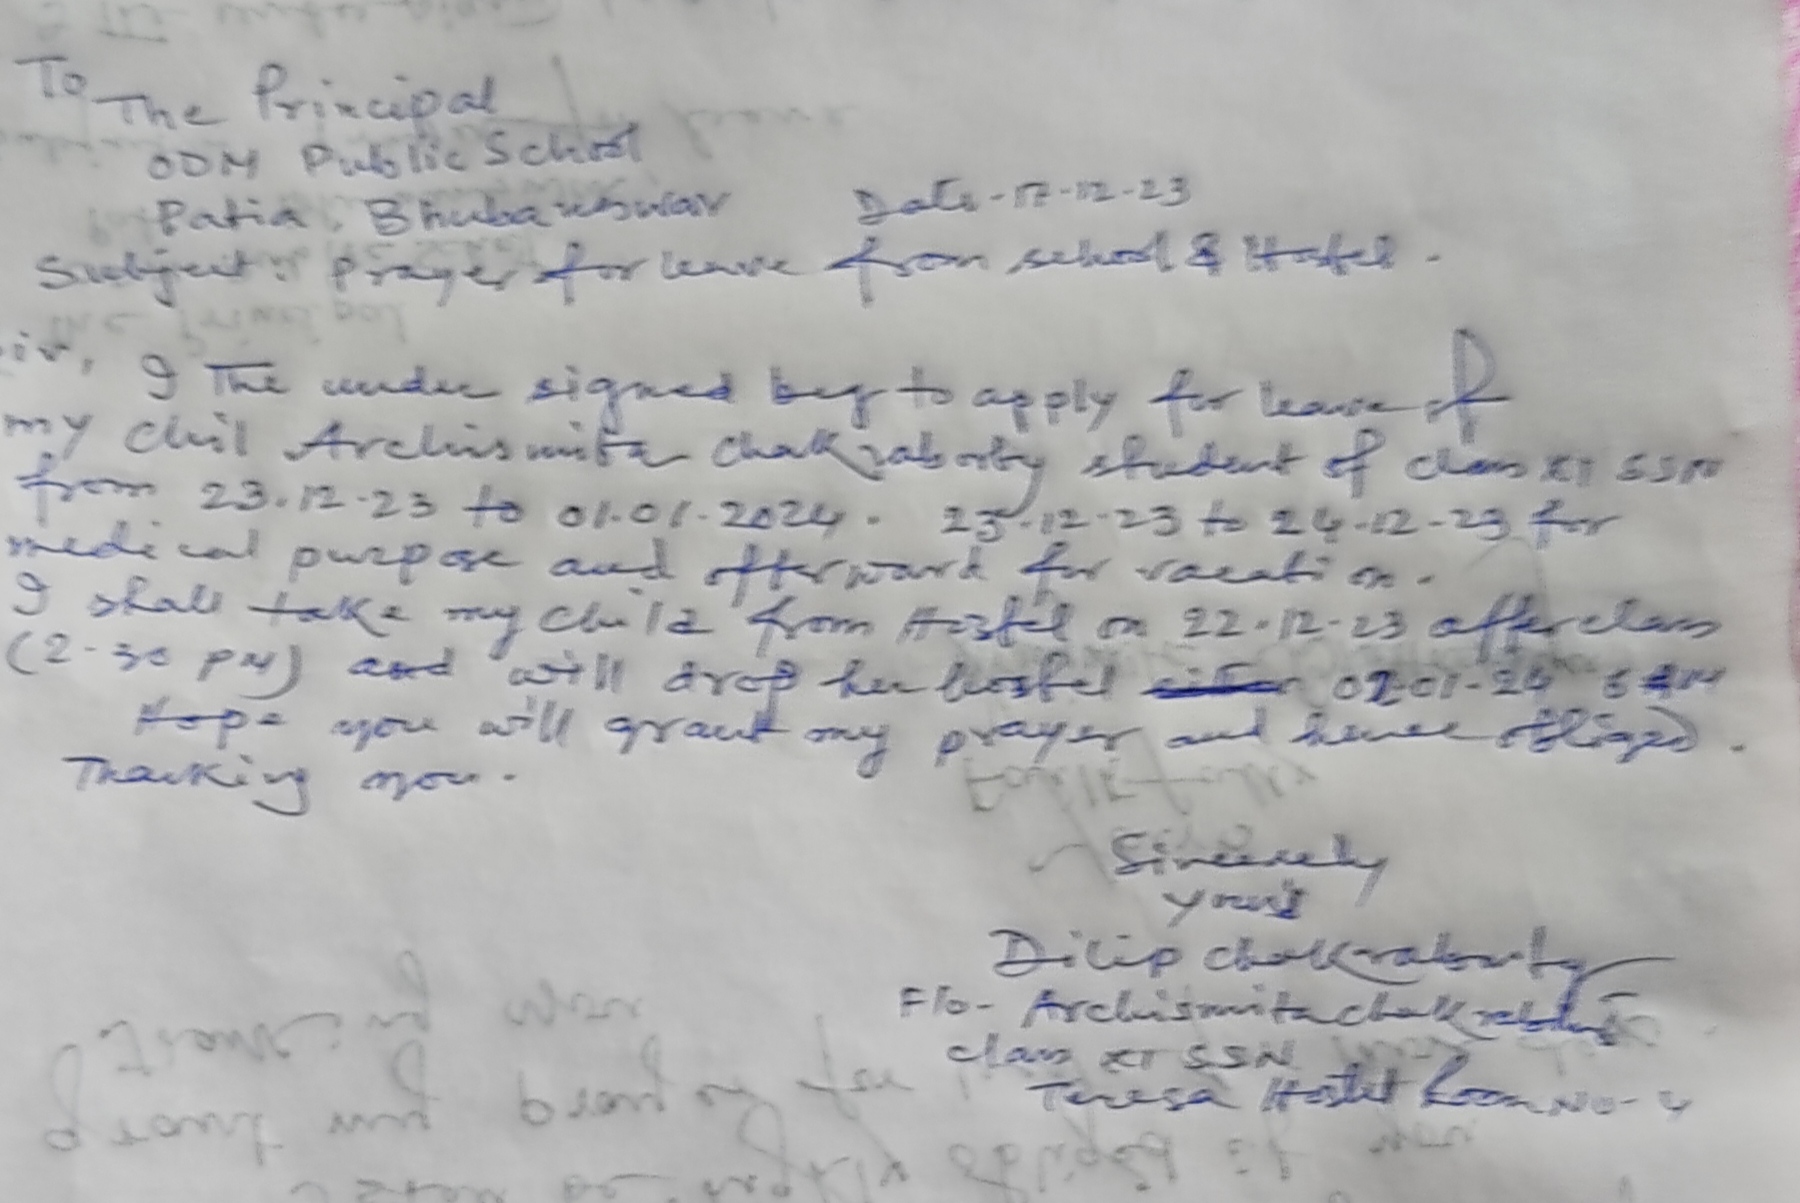 To The Principal
ODM Public School
Patia, Bhubaneswar Date-17-12-23
Subject: Prayer for leave from school & Hostel.
Sir, I The under signed beg to apply for leave of
my chil Archismita Chakraborty student of class XI SSN
from 23.12-23 to 01.01.2024. 23-12-23 to 24-12-23 for
medical purpose and afterward for vacation.
I shall take my child from Hostel on 22.12-23 after class
(2-30 PM) and will drop her hostel 02-01-24
Hope you will grant my prayer and hence obliged.
Thanking you.
Sincerely
yours
Dilip Chakraborty
F/o- Archismita Chakraborty
Class XI SSN
Teresa Hostel Room No- 4